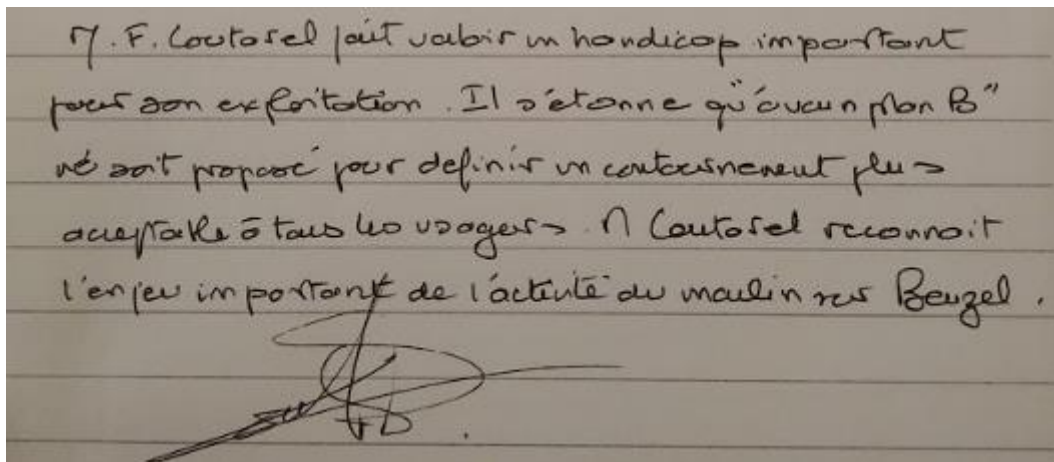 M. F. Coutorel fait valoir un handicap important
pour son exploitation. Il s'étonne qu'aucun plan B"
ne soit proposé pour definir un contournement plus
acceptable à tous les usagers. M Coutorel reconnait
l'enjeu important de l'activité du moulin sur Beuzel.